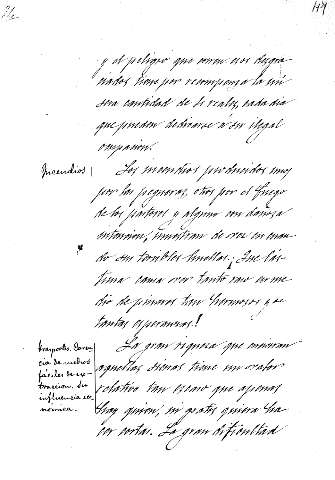 49
y el peligro que corren esos desgra-
ciados tiene por recompensa la mí-
sera cantidad de 6 reales, cada dia
que pueden dedicarse á su ilegal
ocupacion.
Incendios
Los incendios producidos unos
por las pegueras, otros por el fuego
de los pastores y alguno con dañosa
intencion, muestran de vez en cuan-
do sus terribles huellas. ¡Que lás-
tima causa ver tanto raso en me-
dio de pinares tan hermosos y de
tantas esperanzas!
trasportes. Caren-
cia de medios
fáciles de ex-
traccion. Su
influencia eco-
nómica.
La gran riqueza que encierran
aquellas sierras tiene un valor
relativo tan escaso que apenas
hay quien, ni gratis quiera ha-
cer cortas. La gran dificultad